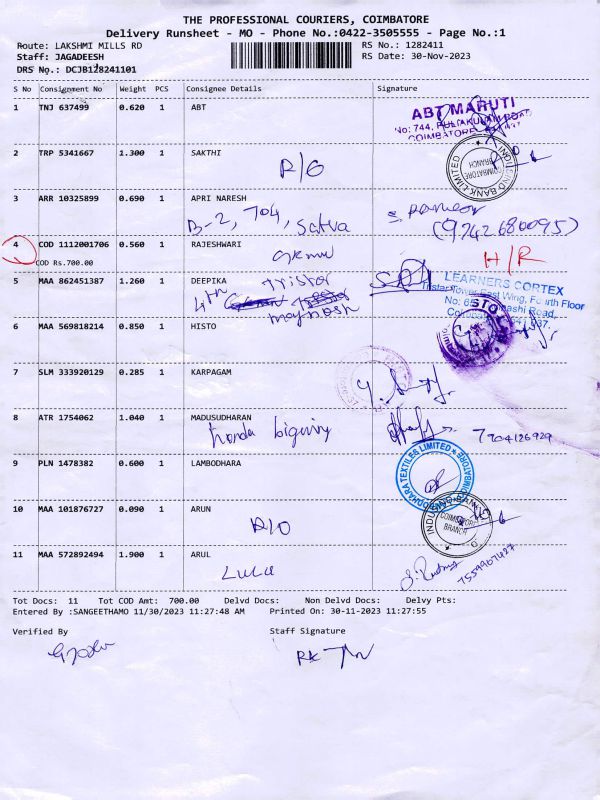 THE PROFESSIONAL COURIERS, COIMBATORE
Delivery Runsheet - MO - Phone No.:0422-3505555 - Page No.:1
Route: LAKSHMI MILLS RD RS No.: 1282411
Staff: JAGADEESH RS Date: 30-Nov-2023
DRS No.: DCJB128241101
S No Consignment No Weight PCS Consignee Details Signature
1 TNJ 637499 0.620 1 ABT
ABT MARUTI
No: 744, PULIAKULAM ROAD
COIMBATORE
2 TRP 5341667 1.300 1 SAKTHI
R/O
INDUSIND BANK LIMITED
COIMBATORE BRANCH
3 ARR 10325899 0.690 1 APRI NARESH
B-2, 704, Satva
(9742680095)
4 COD 1112001706 0.560 1 RAJESHWARI
COD Rs.700.00
H/R
5 MAA 862451387 1.260 1 DEEPIKA
4th Tristar
LEARNERS CORTEX
Tristar Tower East Wing, Fourth Floor
6 MAA 569818214 0.850 1 HISTO
7 SLM 333920129 0.285 1 KARPAGAM
8 ATR 1754062 1.040 1 MADUSUDHARAN
honda bigwing
7904126929
9 PLN 1478382 0.600 1 LAMBODHARA
TEXTILES LIMITED
10 MAA 101876727 0.090 1 ARUN
R/O
COIMBATORE
BRANCH
11 MAA 572892494 1.900 1 ARUL
LuLu
Tot Docs: 11 Tot COD Amt: 700.00 Delvd Docs: Non Delvd Docs: Delvy Pts:
Entered By :SANGEETHAMO 11/30/2023 11:27:48 AM Printed On: 30-11-2023 11:27:55
Verified By Staff Signature